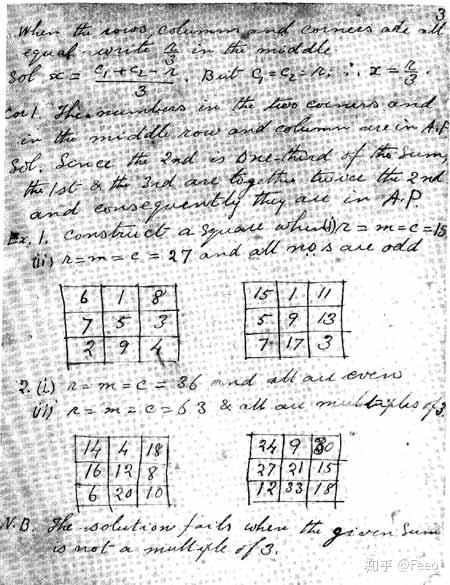 3
When the rows, columns and corners are all
equal write r/3 in the middle.
Sol x = (c₁ + c₂ - r)/3. But c₁ = c₂ = r; ∴ x = r/3.
Cor 1. The numbers in the two corners and
in the middle row and column are in A.P.
Sol. Since the 2nd is one-third of the Sum,
the 1st & the 3rd are together twice the 2nd
and consequently they are in A.P.
Ex. 1. Construct a square when (i) r = m = c = 15
(ii) r = m = c = 27 and all nos are odd
6 1 8 15 1 11
7 5 3 5 9 13
2 9 4 7 17 3
2. (i) r = m = c = 36 and all are even
(ii) r = m = c = 63 & all are multiples of 3.
14 4 18 24 9 30
16 12 8 27 21 15
6 20 10 12 33 18
N.B. The solution fails when the given sum
is not a multiple of 3.
知乎 @Feeo